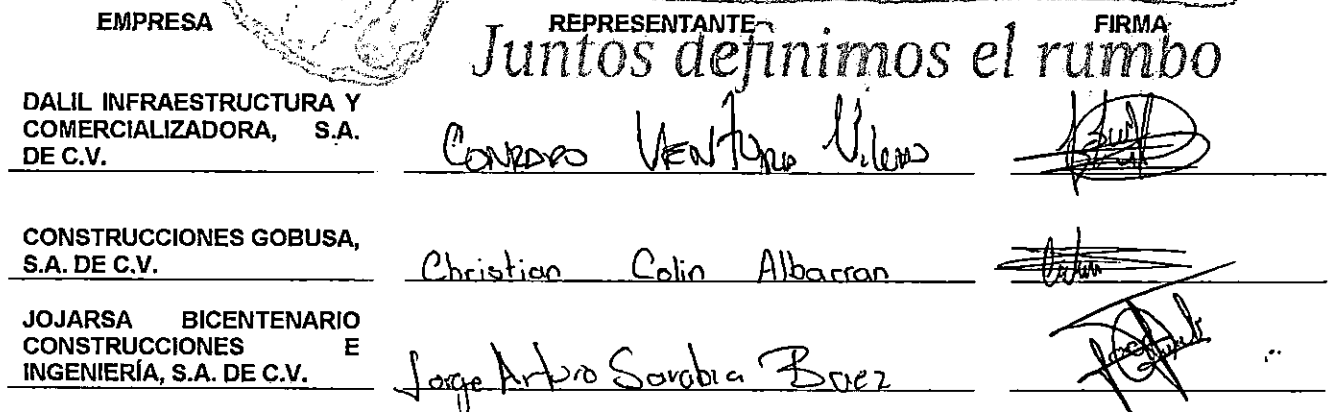 EMPRESA REPRESENTANTE FIRMA
Juntos definimos el rumbo
DALIL INFRAESTRUCTURA Y
COMERCIALIZADORA, S.A.
DE C.V.
CONRADO VENTURA
CONSTRUCCIONES GOBUSA,
S.A. DE C.V.
Christian Colin Albarran
JOJARSA BICENTENARIO
CONSTRUCCIONES E
INGENIERÍA, S.A. DE C.V.
Jorge Arturo Sarabia Baez